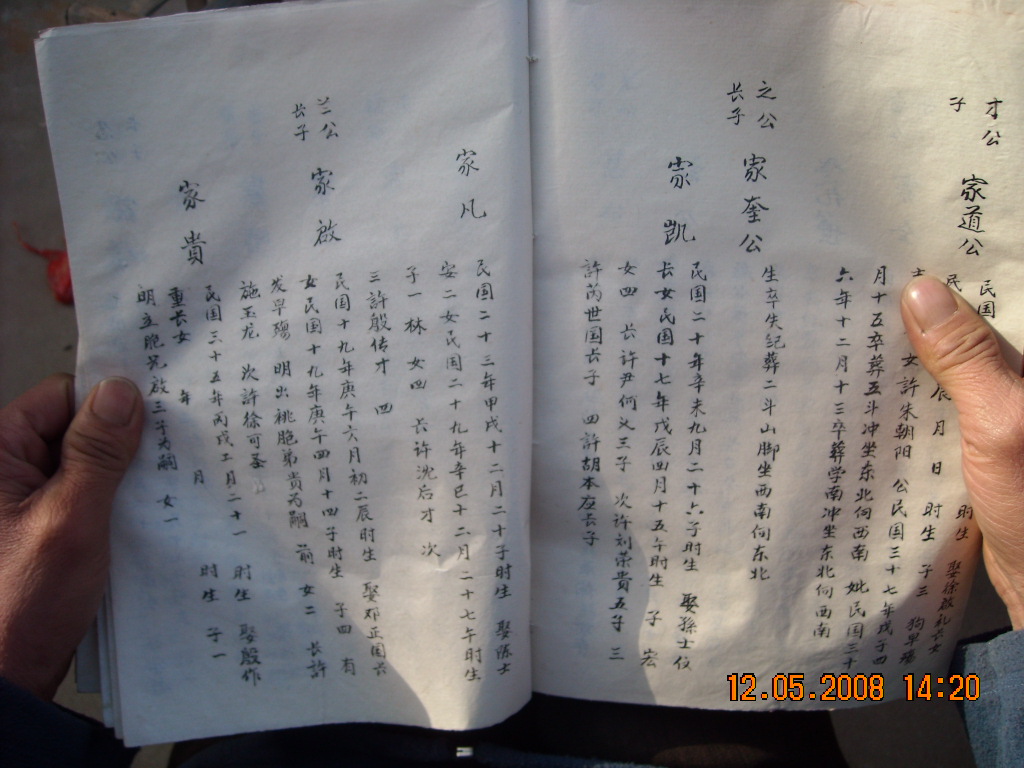 才公
子
家道公
民国
民 辰 月 日 时生 娶徐啟礼长女
女 許朱朝阳 公民国三十七年戊子四 时生 子三 狗早殇
月十五卒葬五斗冲坐东北向西南 妣民国三十
六年十二月十三卒葬学南冲坐东北向西南
之公
长子
家奎公
生卒失纪葬二斗山脚坐西南向东北
家凯
民国二十年辛未九月二十六子时生 娶孫士仪
长女民国十七年戊辰四月十五午时生 子 宏
女四 长许尹何义三子 次许刘荣貴五子 三
許芮世国长子 四許胡本应长子
家凡
民国二十三年甲戌十二月二十子时生 娶陈士
安二女民国二十九年辛巳十二月二十七午时生
子一 林 女四 长许沈后才 次
三許殷传才 四
兰公
长子
家啟
民国十九年庚午六月初二辰时生 娶邓正国长
女民国十九年庚午四月十四子时生 子四 有
发早殇 明出祧胞弟貴为嗣 前 女二 长許
施玉龙 次許徐可圣
家貴
民国三十五年丙戌二月二十一 时生 娶殷作
重长女 年 月 时生 子一
明立胞兄啟三子为嗣 女一
12.05.2008 14:20